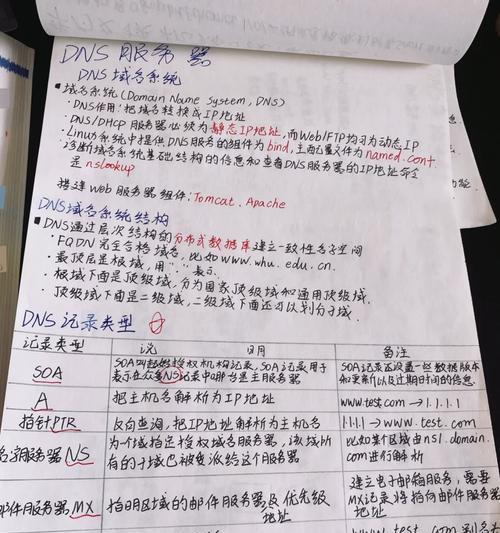 DNS 服务器
DNS 域名系统
域名系统(Domain Name System, DNS)
·DNS作用:把域名转换成IP地址
·DNS/DHCP服务器必须为静态IP地址,而Web/FTP均可为动态IP
·Linux系统中提供DNS服务的组件为bind,主配置文件为named.conf
·诊断域名系统基础结构的信息和查看DNS服务器的IP地址命令
是nslookup
搭建Web服务器组件:Tomcat、Apache
DNS域名系统结构
DNS通过层次结构的分布式数据库建立一致性名字空间
·FQDN完全合格域名,比如www.whu.edu.cn.
·最顶层是根域,用“.”表示.
·根域下面是顶级域,分为国家顶级域和通用顶级域.
·顶级域下面是二级域,二级域下面还可以划分子域.
DNS记录类型
记录类型 说 明 备注
SOA SOA叫起始授权机构记录,SOA记录用于 SOA记录还设置一些数据版本
表示在众多NS记录中哪台是主服务器 和更新以及过期时间的信息.
A 把主机名解析为IP地址 www.test.com→1.1.1.1
指针PTR 反向查询,把IP地址解析为主机名 1.1.1.1→www.test.com
名字服务器NS 为一个域指定授权域名服务器,该域所 比如某个区域由ns1.domain.
有的子域也被委派给这个服务器 com进行解析
邮件服务器MX 指明区域的邮件服务器及优先级 建立电子邮箱服务,需要
地址 MX记录将指向邮件服务器
地址
www.test.com